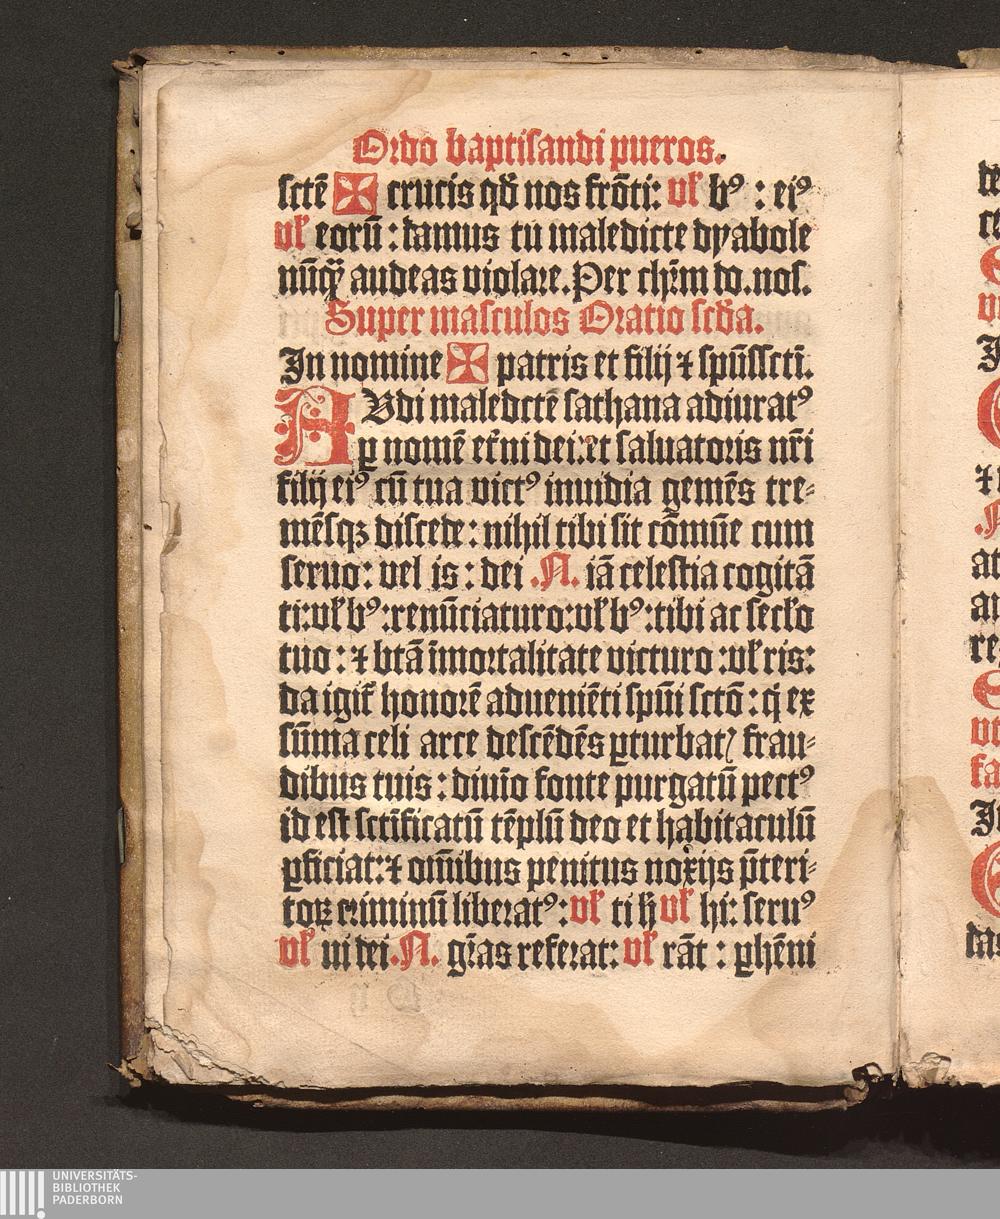 Ordo baptisandi pueros.
sctē ✠ crucis qđ nos frōti: vel̵ hꝰ : eiꝰ
vel̵ eorū : damus tu maledicte dyabole
nūq̄ȝ audeas violare. Per chr̄m do. nos.
Super masculos Oratio scđa.
In nomine ✠ patris et filij ⁊ spūssctī.
AVdi maledctē sathana adiuratꝰ
ꝑ nomē et̄ni dei: et saluatoris nr̄i
filij eiꝰ cū tua victꝰ inuidia gemēs tre⸗
mēsqꝫ discede: nihil tibi sit cōmūe cum
seruo: vel is: dei .N. iā celestia cogitā
ti: vl̵ hꝰ: renūciaturo: vl̵ hꝰ: tibi ac secl̵o
tuo: ⁊ btā īmortalitate victuro: vl̵ ris:
da igit̄ honorē adueniēti spūi sctō: q̇ ex
sūma celi arce descēdēs ꝑturbatꝭ frau⸗
dibus tuis: diuīo fonte purgatū pectꝰ
id est sctīficatū tēplū deo et habitaculū
ꝑficiat: ⁊ om̄ibus penitus noxijs p̄teri⸗
toꝝ criminū liberatꝰ: vl̵ ti ħ vl̵ hi: seruꝰ
vl̵ ui dei .N. gr̄as referat: vl̵ rāt : ꝑhēni
UNIVERSITÄTS-
BIBLIOTHEK
PADERBORN